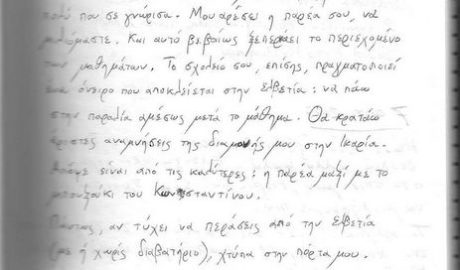 πολύ που σε γνώρισα. Μου αρέσει η παρέα σου, να
μιλάμε. Και αυτό βεβαίως ξεπερνάει το περιεχόμενο
των μαθημάτων. Το σχολείο σου, επίσης, πραγματοποιεί
ένα όνειρο που αποκλείεται στην Ελβετία: να πάω
στην παραλία αμέσως μετά το μάθημα. Θα κρατάω
άριστες αναμνήσεις της διαμονής μου στην Ικαρία.
Απόψε είναι από τις καλύτερες: η παρέα μαζί με το
μπουζούκι του Κωνσταντίνου.
Πάντως, αν τύχει να περάσεις από την Ελβετία
(με ή χωρίς διαβατήριο), χτύπα στην πόρτα μου.